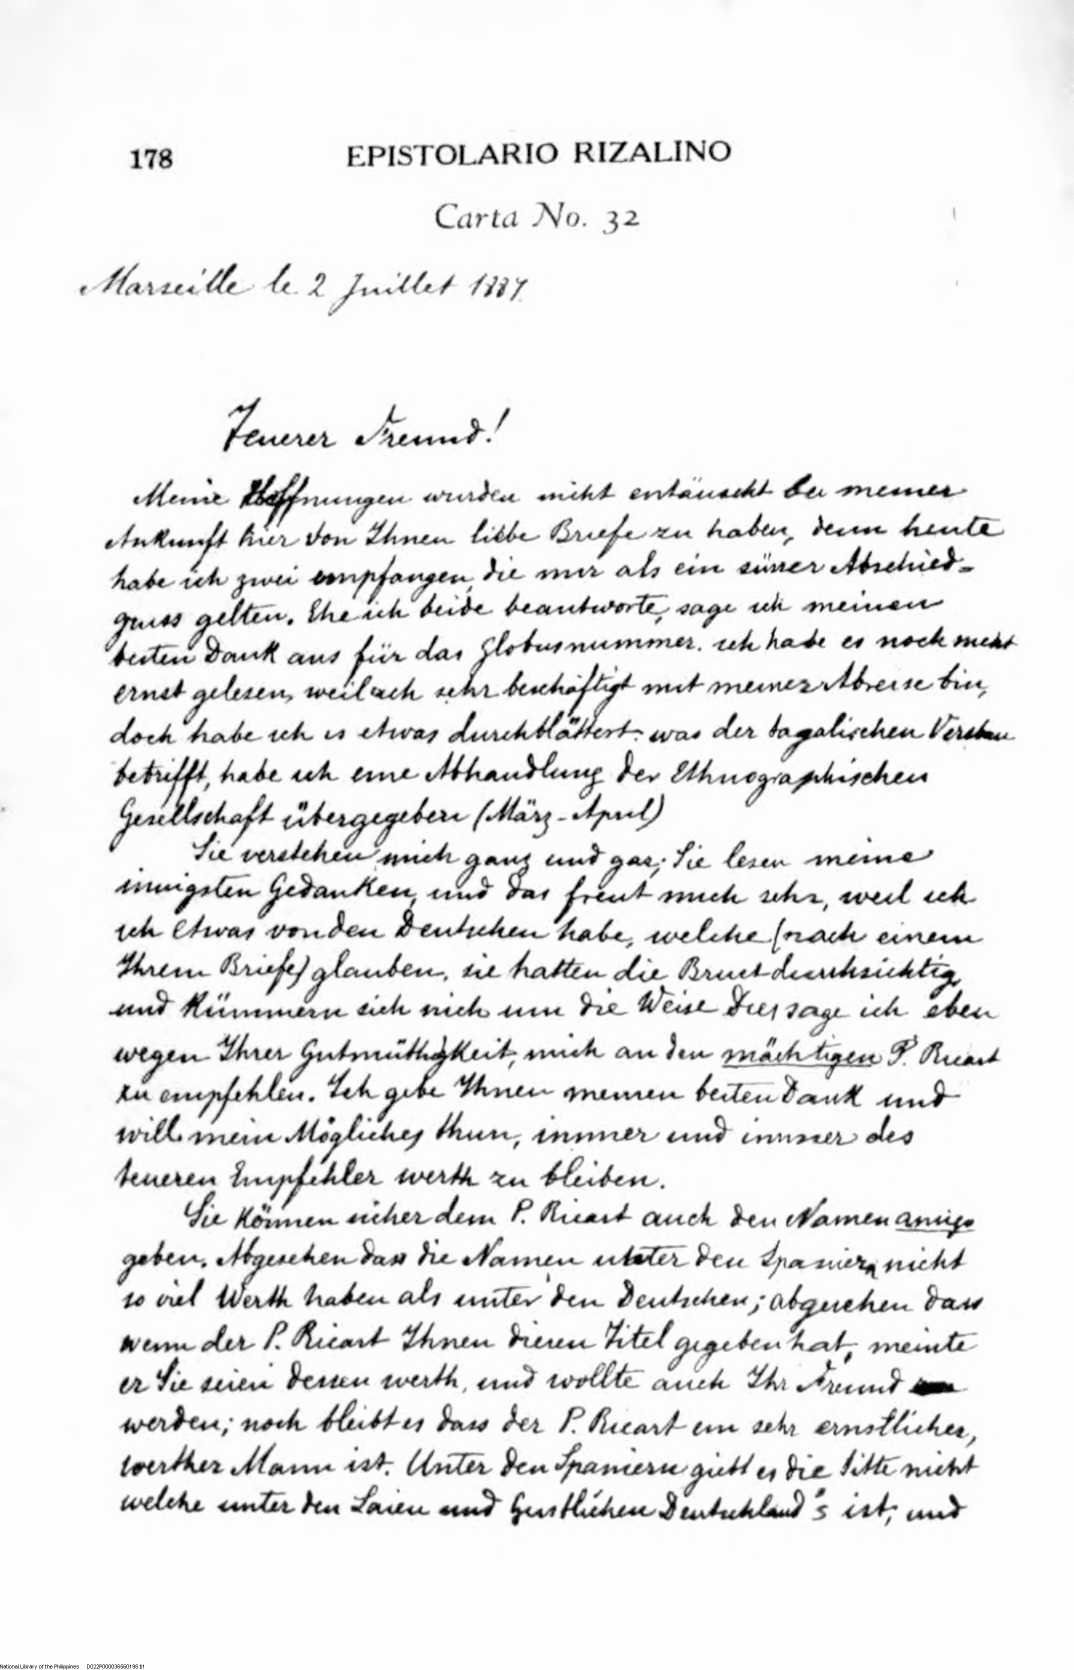 178 EPISTOLARIO RIZALINO
Carta No. 32
Marseille le 2 Juillet 1887
Teuerer Freund!
Meine Hoffnungen wurden nicht entäuscht bei meiner
Ankunft hier von Ihnen liebe Briefe zu haben, denn heute
habe ich zwei empfangen, die mir als ein süsser Abschied-
gruss gelten. Ehe ich beide beantworte, sage ich meinen
besten Dank aus für das Globusnummer. ich habe es noch nicht
ernst gelesen, weil ich sehr beschäftigt mit meiner Abreise bin,
doch habe ich es etwas durchblättert. was der tagalischen Verskun
betrifft, habe ich eine Abhandlung der Ethnographischen
Gesellschaft übergegeben (März-April)
Sie verstehen mich ganz und gar; Sie lesen meine
innigsten Gedanken, und das freut mich sehr, weil ich
ich etwas von den Deutschen habe, welche (nach einem
Ihrem Briefe) glauben, sie hätten die Brust durchsichtig,
und kümmern sich nich um die Weise Dies sage ich eben
wegen Ihrer Gutmüthigkeit, mich an den mächtigen P. Ricart
zu empfehlen. Ich gebe Ihnen meinen besten Dank und
will mein Mögliches thun, immer und immer des
teueren Empfehler werth zu bleiben.
Sie können sicher dem P. Ricart auch den Namen amigo
geben. Abgesehen dass die Namen unter den Spaniern nicht
so viel Werth haben als unter den Deutschen; abgesehen dass
wenn der P. Ricart Ihnen diesen Titel gegeben hat, meinte
er Sie seien dessen werth, und wollte auch Ihr Freund
werden; noch bleibt es dass der P. Ricart ein sehr ernstlicher,
werther Mann ist. Unter den Spaniern giebt es die Sitte nicht
welche unter den Laien und Geistlichen Deutschland's ist, und
National Library of the Philippines